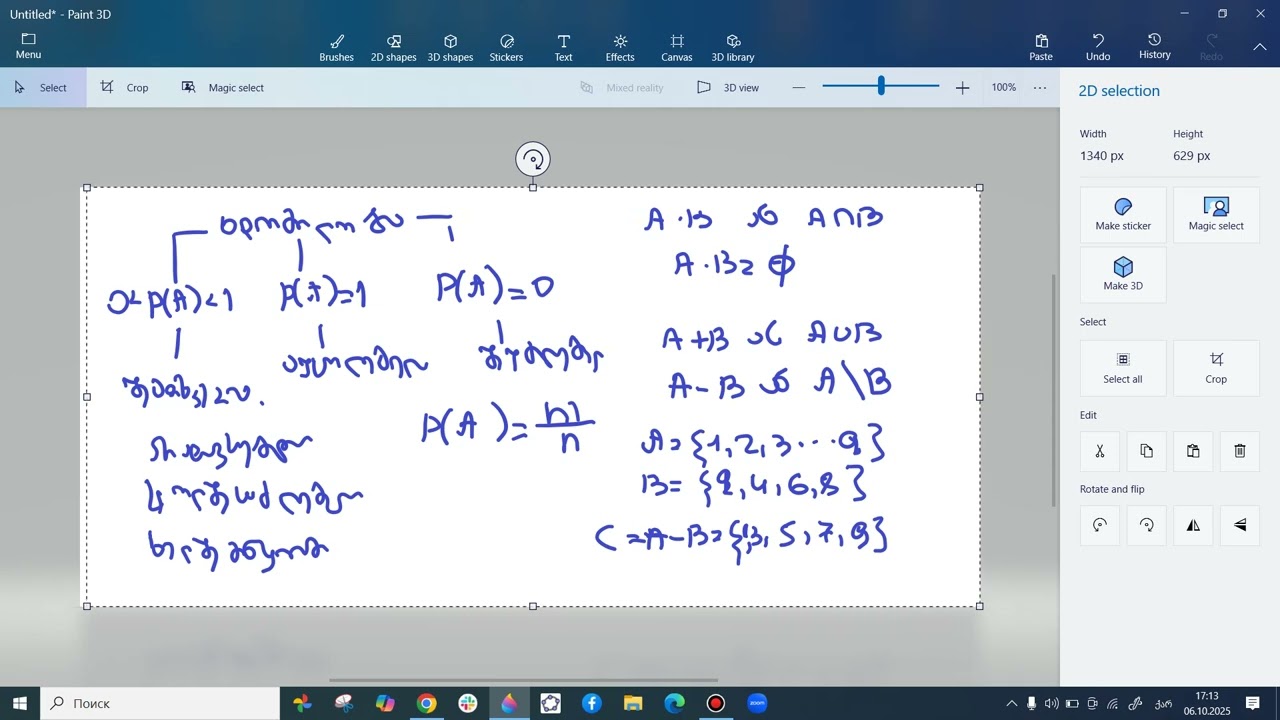 Untitled* - Paint 3D
Menu
Brushes
2D shapes
3D shapes
Stickers
Text
Effects
Canvas
3D library
Paste
Undo
History
Redo
Select
Crop
Magic select
Mixed reality
3D view
100%
2D selection
Width
Height
1340 px
629 px
Make sticker
Magic select
Make 3D
Select
Select all
Crop
Edit
Rotate and flip
0<P(A)<1
P(A)=1
P(A)=0
P(A)=m/n
A·B ან A∩B
A·B=∅
A+B ან A∪B
A-B ან A\B
A={1,2,3...9}
B={2,4,6,8}
C=A-B={1,3,5,7,9}
Поиск
zoom
ქარ
17:13
06.10.2025